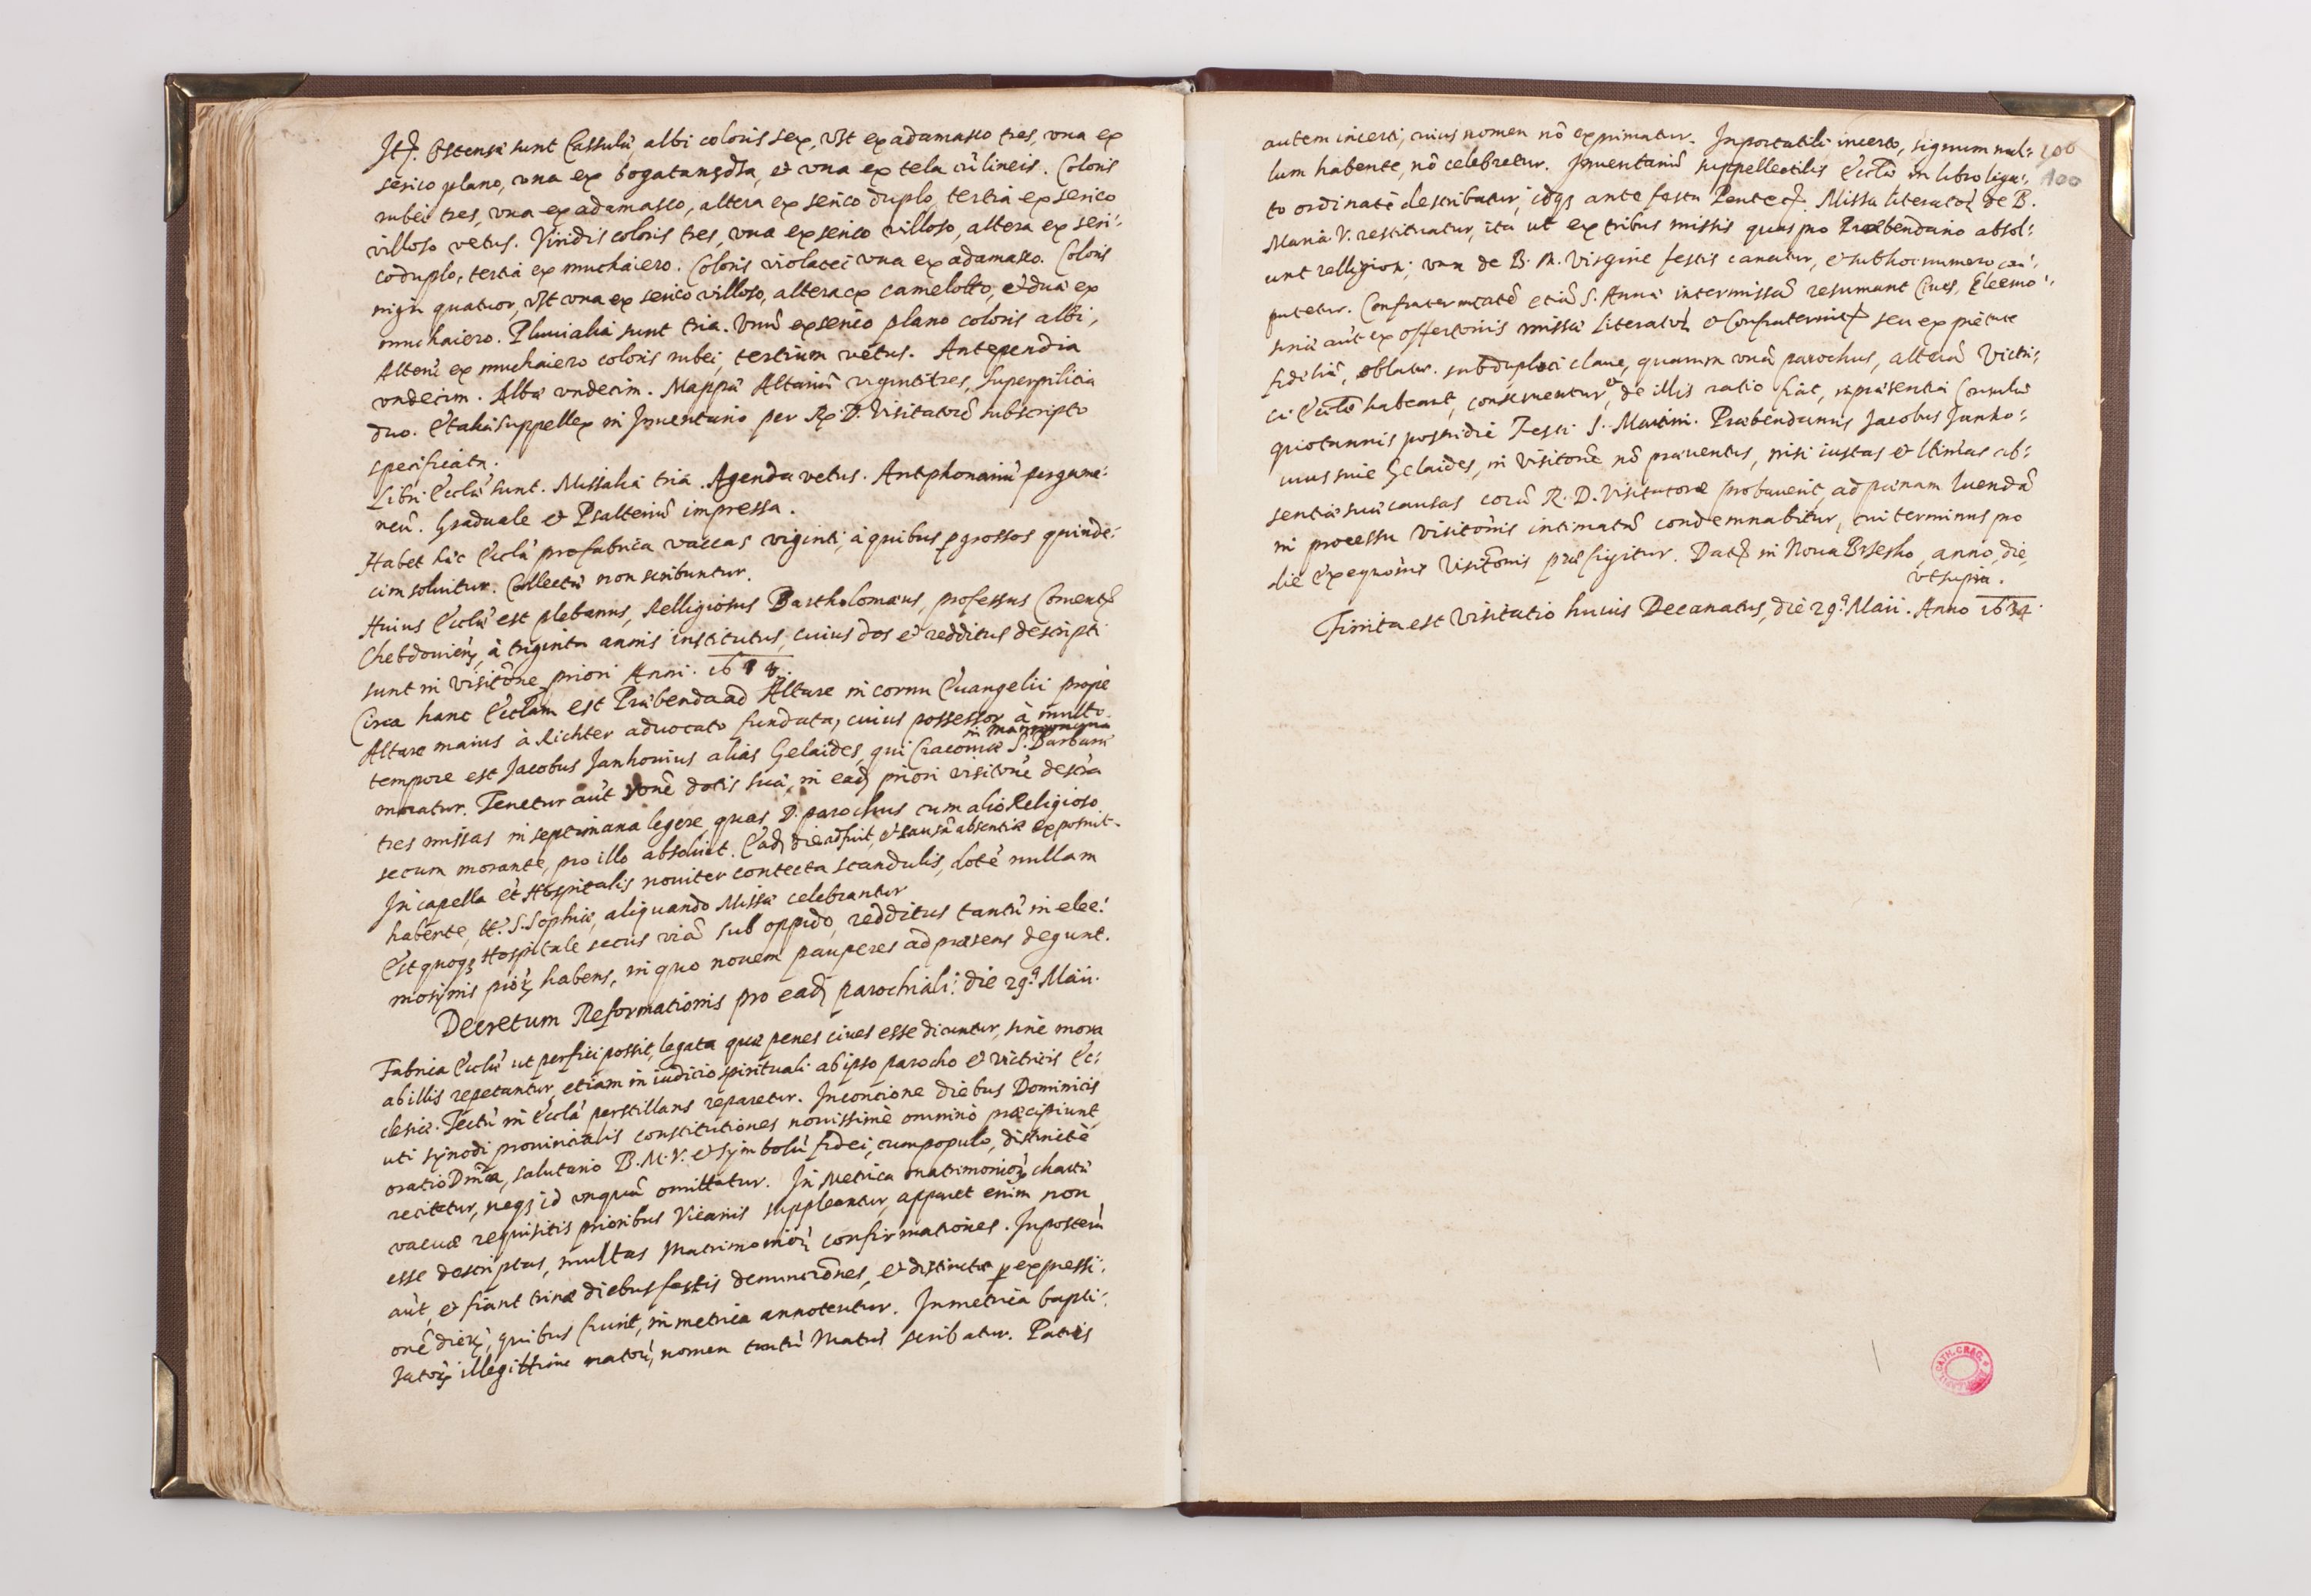 Itẽ. Ostensæ sunt Cassulæ, albi coloris sex, vƷt ex adamasco tres, vna ex
serico plano, vna ex bogatansƷƷta, et vna ex tela cũ lineis. Coloris
rubei tres, vna ex adamasco, altera ex serico duplo, tertia ex serico
villoso vetus. Viridis coloris tres, vna ex serico villoso, altera ex seri:
co duplo, tertia ex muchaiero. Coloris violacei vna ex adamasco. Coloris
nigri quatuor, vƷt vna ex serico villoso, altera ex camelotto, et duæ ex
muchaiero. Pluuialia sunt tria. Vnũ ex serico plano coloris albi,
Alterũ ex muchaiero coloris rubei, tertium vetus. Antependia
vndecim. Albæ vndecim. Mappæ Altariũ viginti tres, Superpilicia
duo. Et alia suppellex in Inuentario per R. D. Visitatorẽ subscripto
specificata.
Libri Eccłæ sunt. Missalia tria. Agenda vetus. Antiphonariũ pergame:
neũ. Graduale et Psalteriũ impressa.
Habet hæc Eccła pro fabrica vaccas viginti, à quibus p grossos quinde:
cim soluitur. Collectæ non scribuntur.
Huius Eccłæ est plebanus, Relligiosus Bartholomæus, professus Conuentꝰ
Chebdouieñ, à triginta annis institutus, cuius dos et redditus descripti
sunt in visitõne priori Anni. 1618.
Circa hanc Eccłam est Præbenda ad Altare in cornu Euangelii propè
Altare maius à Richter aduocato fundata, cuius possessor à multo
tempore est Jacobus Jankouius alias Gelaides, qui Cracouiæ S. Barbaræ
moratur. Tenetur aũt rõne dotis suæ, in eaꝺ priori visitõne descrᵗa
tres missas in septimana legere, quas D. parochus cum alio Religioso
secum morante, pro illo absoluit. Eaꝺ die adfuit, et causã absentiæ exposuit.
In capella et Hospitalis nouiter contecta scandulis, dotẽ nullam
habente, tt. S. Sophiæ, aliquando Missæ celebrantur
Est quoqꝫ Hospitale secus viã sub oppido, redditus tantũ in elee:
mosynis pioꝝ habens, in quo nouem pauperes ad præsens degunt.
Decretum Reformationis pro eaꝺ parochiali: die 29ª Maii.
Fabrica Eccłæ ut perfici possit, legata quæ penes ciues esse dicuntur, sine mora
ab illis repetantur, etiam in iudicio spirituali ab ipso parocho et victricis Ec:
clesiæ. Tectũ in Eccła perstillans reparetur. In concione diebus Dominicis
uti synodi prouincialis constitutiones nouissimè omnino præcipiunt,
oratio Dñica, salutatio B. M. V. et symbolũ fidei, cum populo, distinctè
recitetur, neqꝫ id vnquã omittatur. In Metrica matrimonioꝝ chartæ
vacuæ requisitis prioribus Vicariis suppleantur, apparet enim non
esse descriptas, multas matrimonioꝝ confirmationes. In posterũ
aũt, et fiant trinæ diebus festis denunciõnes, et distinctæ p expressi:
onẽ dieꝝ, quibus fiunt, in metrica annotentur. In metrica bapti:
zatoꝝ illegittime natoꝝ, nomen tantũ Matris scribatur. Patris
autem incerti, cuius nomen nõ exprimatur. In portatili incerto, signum nul: 100
lum habente, nõ celebretur. Inuentariũ suppellectilis Eccłæ in libro liga: 100
to ordinatè describatur, idqꝫ ante festa Pentecꝭ. Missa literatoꝝ de B.
Maria V. restituatur, ita ut ex tribus missis quas pro Præbendario absol:
uunt relligiosi, vna de B. M. Virgine festis canatur, et sub hoc numero com:
putetur. Confraternitatẽ etiã S. Annæ intermissã resumant Ciues, Eleemo:
sinæ aũt ex offertoriis missæ literatoꝝ et Confraternitꝭ seu ex pietate
fideliũ, oblatæ. sub duplici claue, quarum vnã parochus, alterã Victri:
ci Eccłæ habeant, conseruentur, et de illis ratio fiat, in præsentia Consulũ
quotannis postridie Festi S. Martini. Præbendarius Jacobus Janko:
uius siue Gelaides, in visitõne nõ præuentus, nisi iustas et ltimas ab:
sentiæ suæ causas corã R. D. Visitatore probauerit, ad pœnam luendã
in processu visitõnis intimatã condemnabitur, cui terminus pro
die Visitõnis præfigitur. Datꝭ in Noua Brzesko, anno, die,
vt supra.
Finita est Visitatio huius Decanatus, die 29ª Maii. Anno